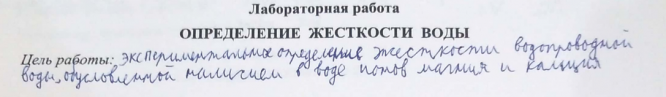 Лабораторная работа
ОПРЕДЕЛЕНИЕ ЖЕСТКОСТИ ВОДЫ
Цель работы: экспериментальное определение жесткости водопроводной
воды, обусловленной наличием в воде ионов магния и кальция